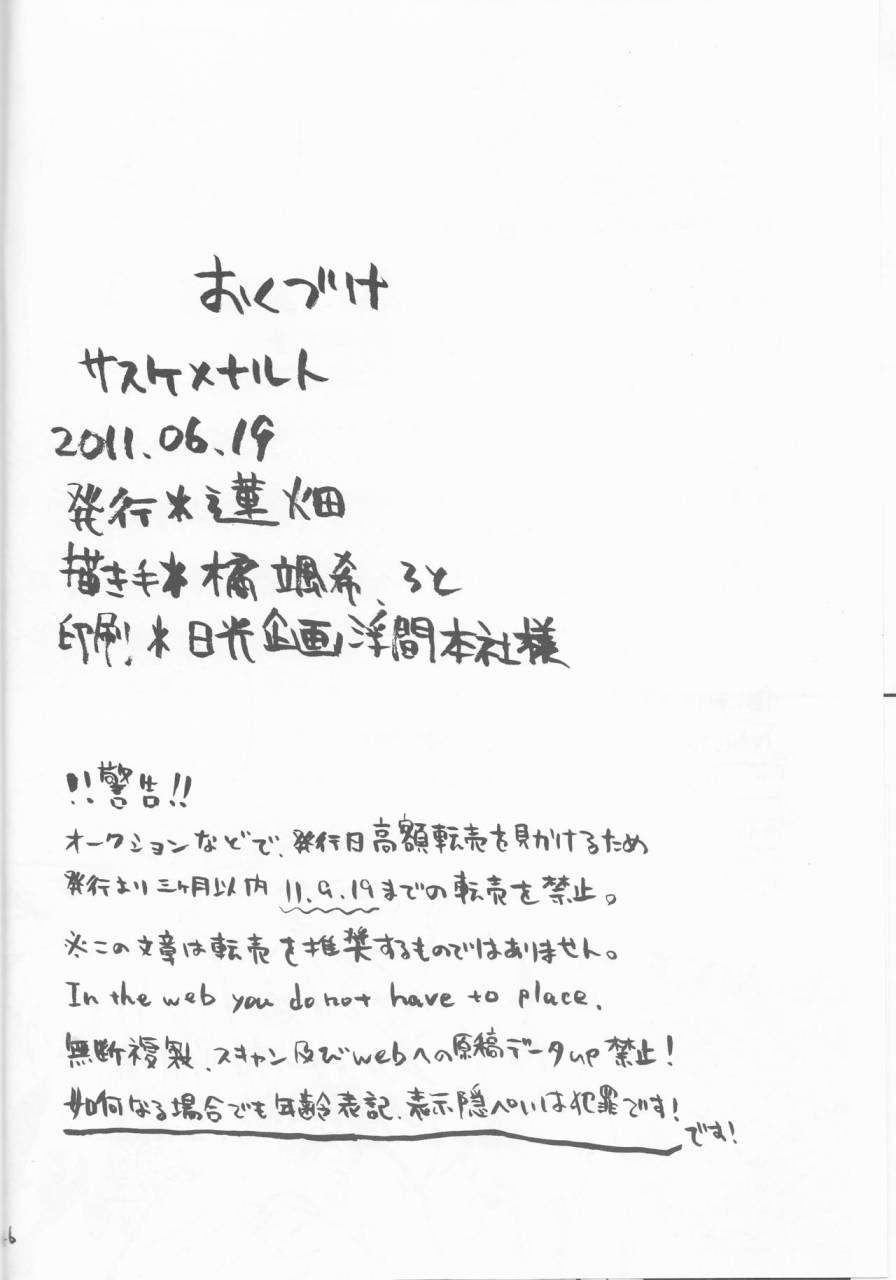 おくづけ
サスケ×ナルト
2011.06.19
発行*蓮畑
描き手*橘颯希、ろと
印刷*日光企画浮間本社様
!!警告!!
オークションなどで、発行日高額転売を見かけるため
発行より三ヶ月以内 11.9.19までの転売を禁止。
※この文章は転売を推奨するものではありません。
In the web you do not have to place.
無断複製、スキャン及びwebへの原稿データup禁止!
如何なる場合でも年齢表記、表示隠ぺいは犯罪です!
です!